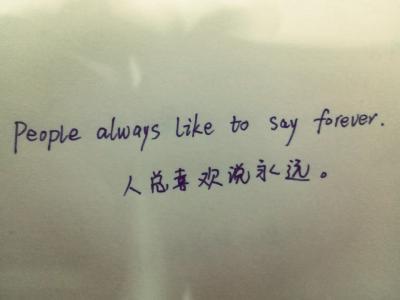 People always like to say forever.
人总喜欢说永远。